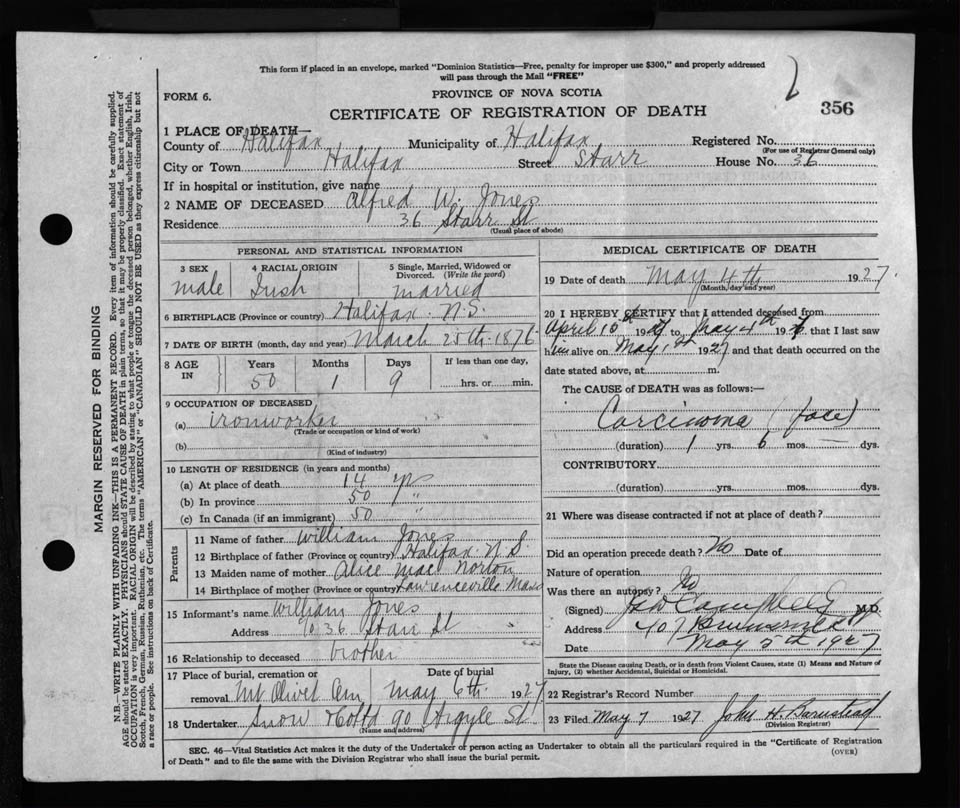 This form if placed in an envelope, marked "Dominion Statistics—Free, penalty for improper use $300," and properly addressed
will pass through the Mail "FREE"
FORM 6.
PROVINCE OF NOVA SCOTIA
CERTIFICATE OF REGISTRATION OF DEATH
356
1 PLACE OF DEATH—
County of Halifax Municipality of Halifax Registered No.
(For use of Registrar General only)
City or Town Halifax Street Starr House No. 36
If in hospital or institution, give name
2 NAME OF DECEASED Alfred W. Jones
Residence 36 Starr St
(Usual place of abode)
PERSONAL AND STATISTICAL INFORMATION
3 SEX 4 RACIAL ORIGIN 5 Single, Married, Widowed or
Divorced. (Write the word)
male Irish married
6 BIRTHPLACE (Province or country) Halifax N.S.
7 DATE OF BIRTH (month, day and year) March 25th 1876
8 AGE IN Years Months Days If less than one day,
50 1 9 hrs. or min.
9 OCCUPATION OF DECEASED
(a) ironworker
(Trade or occupation or kind of work)
(b)
(Kind of industry)
10 LENGTH OF RESIDENCE (in years and months)
(a) At place of death 14 yrs
(b) In province 50 "
(c) In Canada (if an immigrant) 50 "
Parents
11 Name of father William Jones
12 Birthplace of father (Province or country) Halifax N.S.
13 Maiden name of mother Alice Mac Norton
14 Birthplace of mother (Province or country) Lawrenceville Mass
15 Informant's name William Jones
Address 36 Starr St
16 Relationship to deceased brother
17 Place of burial, cremation or Date of burial
removal Mt Olivet Cem May 6th 1927
18 Undertaker Snow & Co Ltd 90 Argyle St
(Name and address)
MEDICAL CERTIFICATE OF DEATH
19 Date of death May 4th 1927
(Month, day and year)
20 I HEREBY CERTIFY that I attended deceased from
April 15th 192 to May 4th 192 that I last saw
him alive on May 1st 1927 and that death occurred on the
date stated above, at m.
The CAUSE of DEATH was as follows:—
Carcinoma (face)
(duration) 1 yrs. 6 mos. — dys.
CONTRIBUTORY
(duration) yrs. mos. dys.
21 Where was disease contracted if not at place of death?
Did an operation precede death? No Date of
Nature of operation
Was there an autopsy? No
(Signed) Campbell M.D.
Address 407 Brunswick St
Date May 5th 1927
State the Disease causing Death, or in death from Violent Causes, state (1) Means and Nature of
Injury, (2) whether Accidental, Suicidal or Homicidal.
22 Registrar's Record Number
23 Filed May 7 1927 John H. Barnstead
(Division Registrar)
SEC. 46—Vital Statistics Act makes it the duty of the Undertaker or person acting as Undertaker to obtain all the particulars required in the "Certificate of Registration
of Death" and to file the same with the Division Registrar who shall issue the burial permit.
(OVER)
MARGIN RESERVED FOR BINDING
N.B.—WRITE PLAINLY WITH UNFADING INK—THIS IS A PERMANENT RECORD. Every item of information should be carefully supplied.
AGE should be stated EXACTLY. PHYSICIANS should STATE CAUSE OF DEATH in plain terms, so that it may be properly classified. Exact statement of
OCCUPATION is very important. RACIAL ORIGIN will be described by stating to what people or tongue the deceased person belonged, whether English, Irish,
Scotch, French, German, Russian, Ruthenian, etc. The terms "AMERICAN" or "CANADIAN" SHOULD NOT BE USED as they express citizenship but not
a race or people. See instructions on back of Certificate.